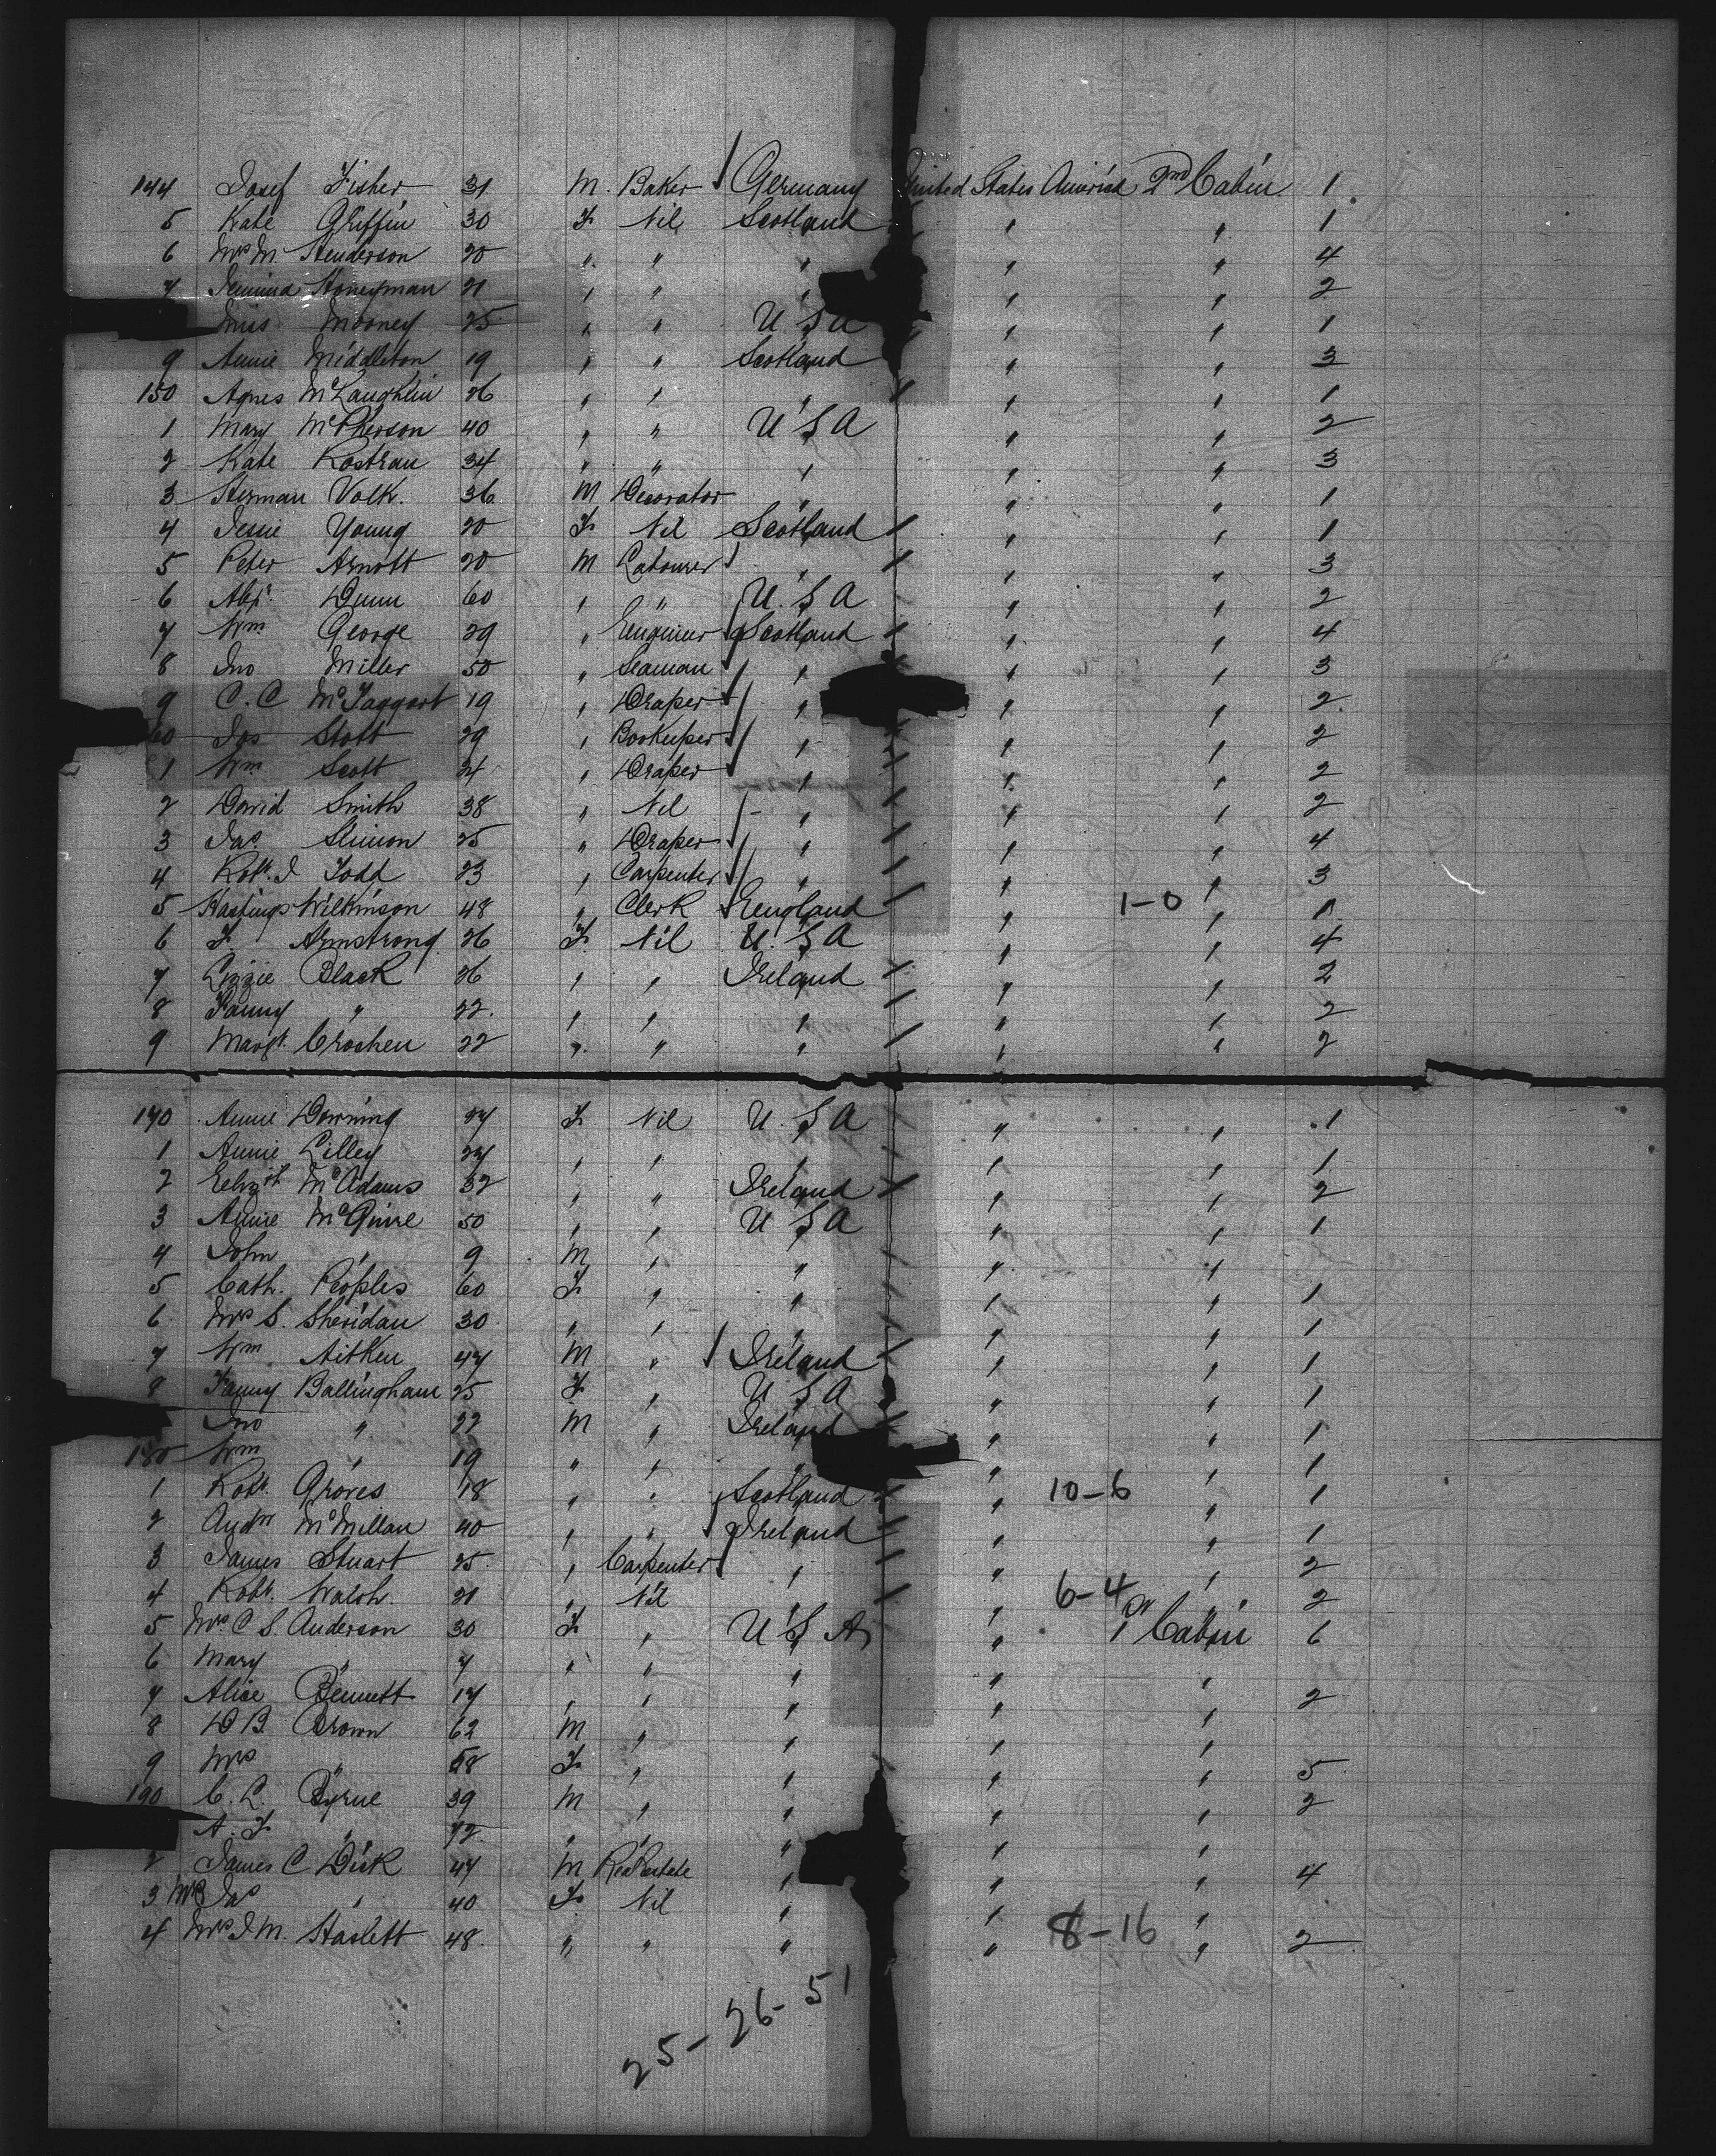 144 Josef Fisher 31 M. Baker Germany United States America 2nd Cabin 1
5 Kate Griffin 30 F Nil Scotland " " 1
6 Mrs M. Henderson 20 " " " " " 4
7 Jemima Honeyman 21 " " " " " 2
Miss Mooney 25 " " U.S.A " " 1
9 Annie Middleton 19 " " Scotland " " 3
150 Agnes McLaughlin 26 " " " " " 1
1 Mary McPherson 40 " " U S A " " 2
2 Kate Rostrau 34 " " " " " 3
3 Herman Volk. 36 M Decorator " " " 1
4 Jessie Young 20 F Nil Scotland " " 1
5 Peter Arnott 20 M Labourer " " " 3
6 Alexr. Dunn 60 " " U.S A " " 2
7 Wm George 29 " Engineer Scotland " " 4
8 Jno Miller 50 " Seaman " " " 3
9 C. C McTaggart 19 " Draper " " " 2
60 Jas Stott 29 " Bookeeper " " " 2
1 Wm Scott 24 " Draper " " " 2
2 David Smith 38 " Nil " " " 2
3 Jas. Slimon 25 " Draper " " " 4
4 Robt. J Todd 23 " Carpenter " " " 3
5 Hastings Wilkinson 48 " Clerk England " 1-0 " 1
6 F. Armstrong 26 F Nil U.S A " " 4
7 Lizzie Black 26 " " Ireland " " 2
8 Fanny " 22. " " " " " 2
9 Margt. Croshen 22 " " " " " 2
170 Annie Downing 27 F Nil U.S A " " 1
1 Annie Lilley 27 " " " " " 1
2 Elizth McAdams 32 " " Ireland " " 2
3 Annie McGuire 50 " " U S A " " 1
4 John " 9 M " " " "
5 Cath. Peoples 60 F " " " " 1
6 Mrs S. Sheridan 30 " " " " " 1
7 Wm Aitken 47 M " Ireland " " 1
8 Fanny Ballingham 25 F " U S A " " 1
Jno " 22 M " Ireland " " 1
180 Wm " 19 " " " " " 1
1 Robt. Groves 18 " " Scotland " 10-6 " 1
2 Andw McMillan 40 " " Ireland " " 1
3 James Stuart 25 " Carpenter " " " 2
4 Robt. Walsh. 21 " Nil " " 6-4 " 2
5 Mrs C S. Anderson 30 F " U S A " 1st Cabin 6
6 Mary " 7 " " " " "
7 Alice Bennett 17 " " " " " 2
8 D B. Brown 62 M " " " "
9 Mrs " 58 F " " " " 5
190 C. L. Byrne 39 M " " " " 2
A. F " 12 " " " " "
2 James C Dick 47 M Real Estate " " " 4
3 Mrs Jas " 40 F Nil " " "
4 Mrs J M. Haslett 48. " " " " 8-16 " 2
25-26-51